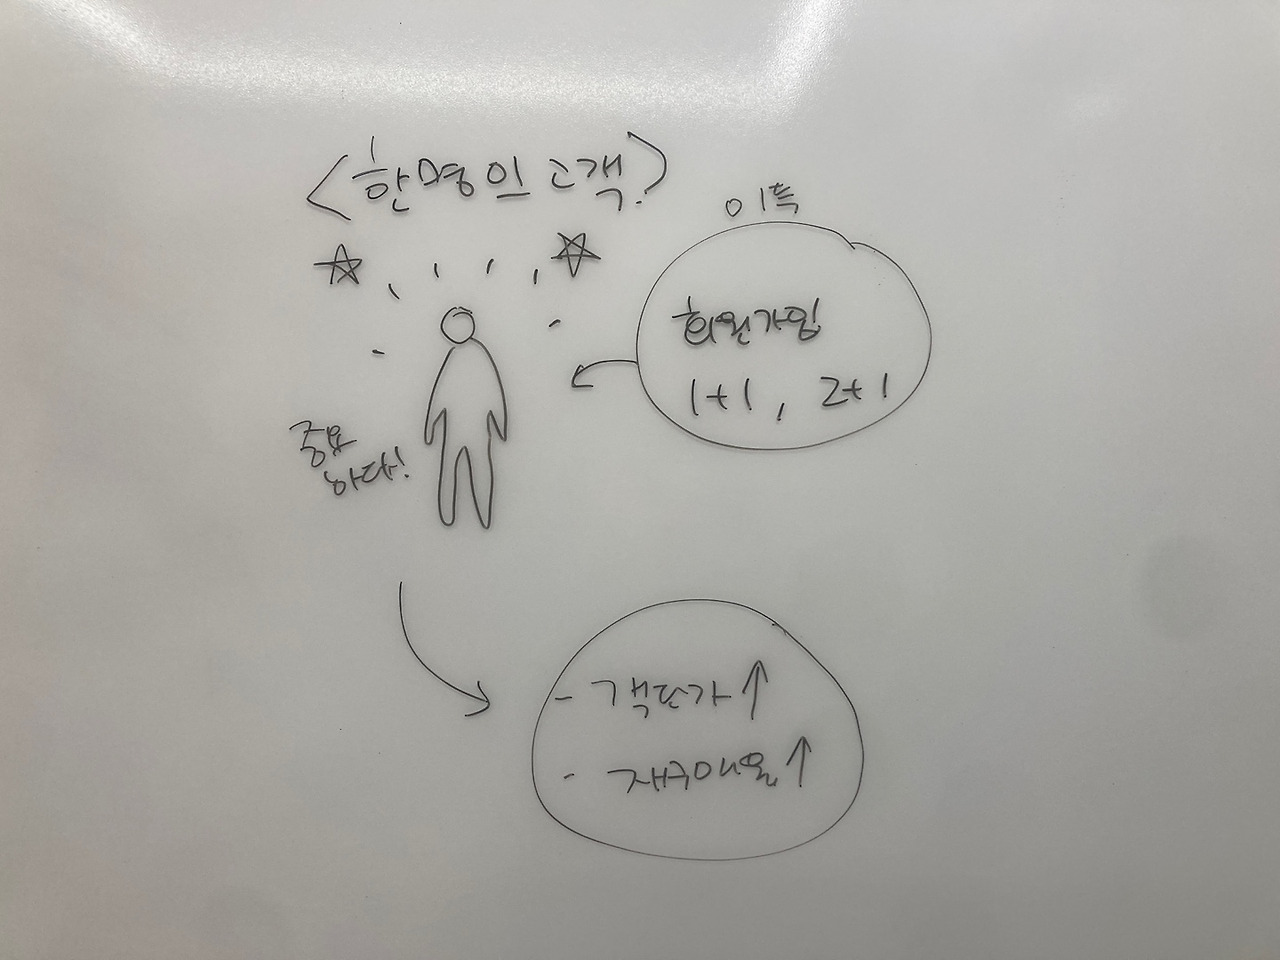 <한명의 고객>
이득
회원가입
1+1, 2+1
중요
하다!
- 객단가↑
- 재구매율↑